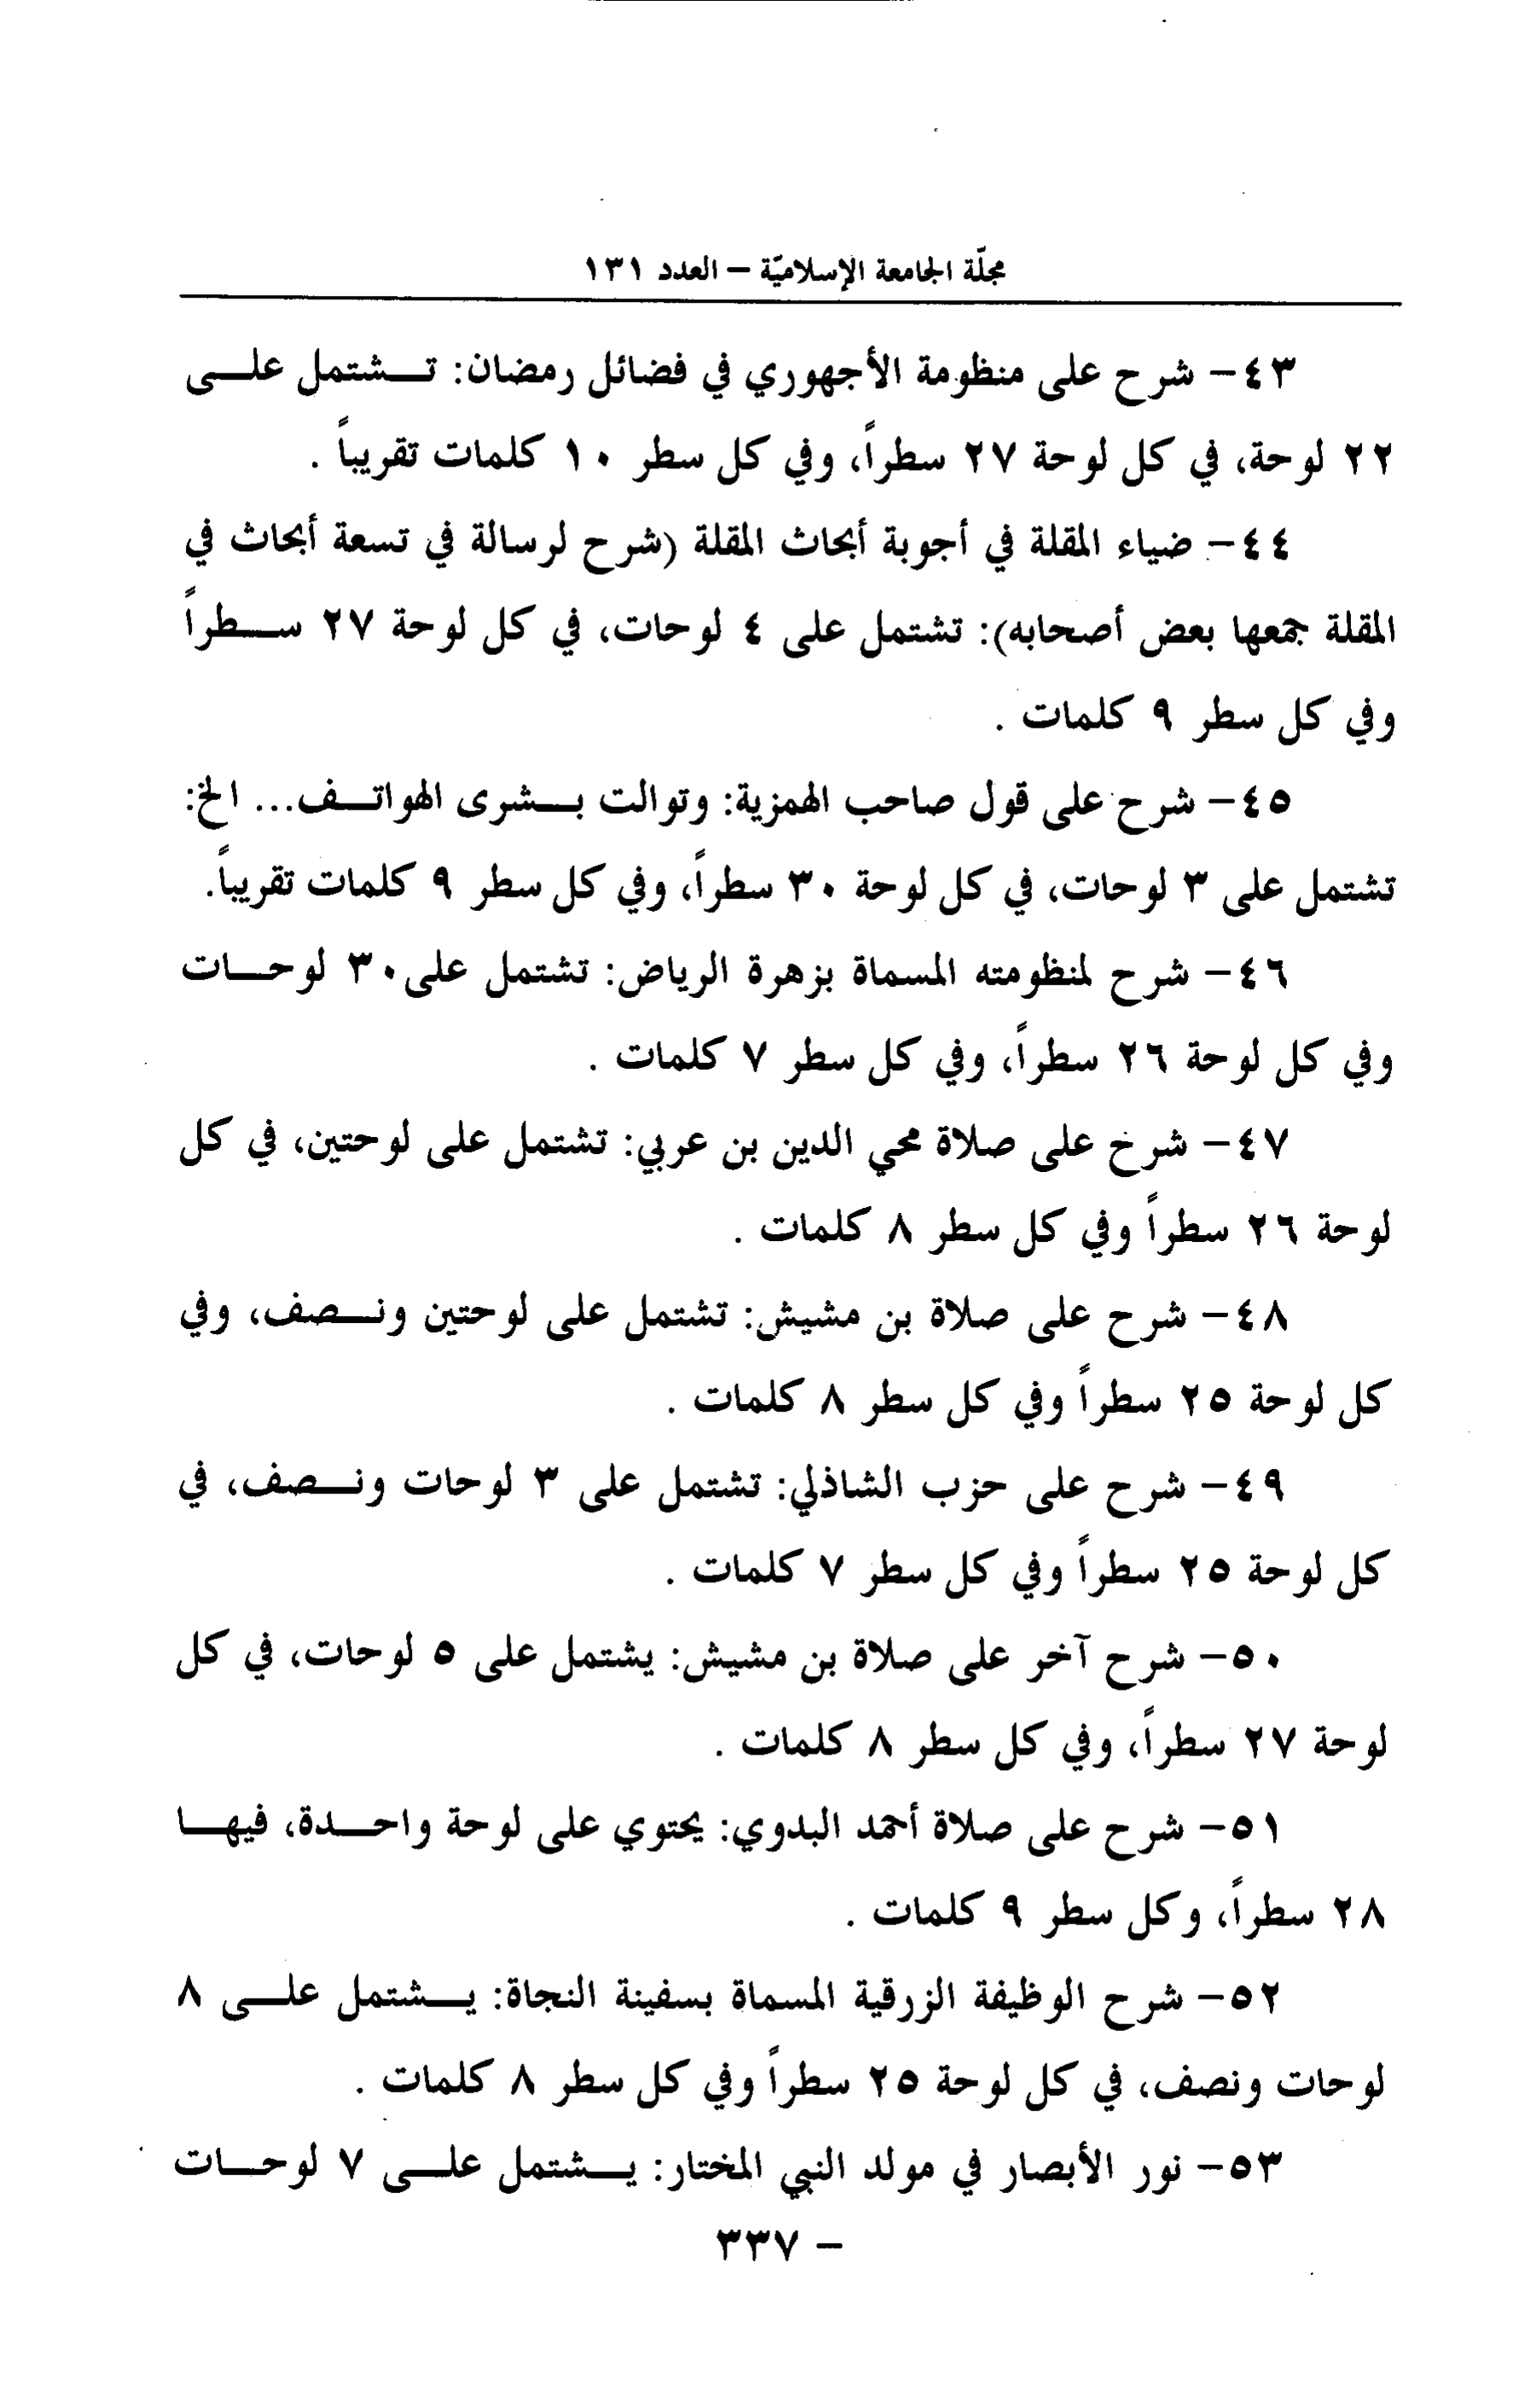 مجلّة الجامعة الإسلاميّة – العدد ١٣١
٤٣- شرح على منظومة الأجهوري في فضائل رمضان: تشتمل على
٢٢ لوحة، في كل لوحة ٢٧ سطراً، وفي كل سطر ١٠ كلمات تقريباً .
٤٤- ضياء المقلة في أجوبة أبحاث المقلة (شرح لرسالة في تسعة أبحاث في
المقلة جمعها بعض أصحابه): تشتمل على ٤ لوحات، في كل لوحة ٢٧ سطراً
وفي كل سطر ٩ كلمات .
٤٥- شرح على قول صاحب الهمزية: وتوالت بشرى الهواتف... الخ:
تشتمل على ٣ لوحات، في كل لوحة ٣٠ سطراً، وفي كل سطر ٩ كلمات تقريباً.
٤٦- شرح لمنظومته المسماة بزهرة الرياض: تشتمل على٣٠ لوحات
وفي كل لوحة ٢٦ سطراً، وفي كل سطر ٧ كلمات .
٤٧- شرخ على صلاة محي الدين بن عربي: تشتمل على لوحتين، في كل
لوحة ٢٦ سطراً وفي كل سطر ٨ كلمات .
٤٨- شرح على صلاة بن مشيش: تشتمل على لوحتين ونصف، وفي
كل لوحة ٢٥ سطراً وفي كل سطر ٨ كلمات .
٤٩- شرح على حزب الشاذلي: تشتمل على ٣ لوحات ونصف، في
كل لوحة ٢٥ سطراً وفي كل سطر ٧ كلمات .
٥٠- شرح آخر على صلاة بن مشيش: يشتمل على ٥ لوحات، في كل
لوحة ٢٧ سطراً، وفي كل سطر ٨ كلمات .
٥١- شرح على صلاة أحمد البدوي: يحتوي على لوحة واحدة، فيها
٢٨ سطراً، وكل سطر ٩ كلمات .
٥٢- شرح الوظيفة الزرقية المسماة بسفينة النجاة: يشتمل على ٨
لوحات ونصف، في كل لوحة ٢٥ سطراً وفي كل سطر ٨ كلمات .
٥٣- نور الأبصار في مولد النبي المختار: يشتمل على ٧ لوحات
– ٣٣٧